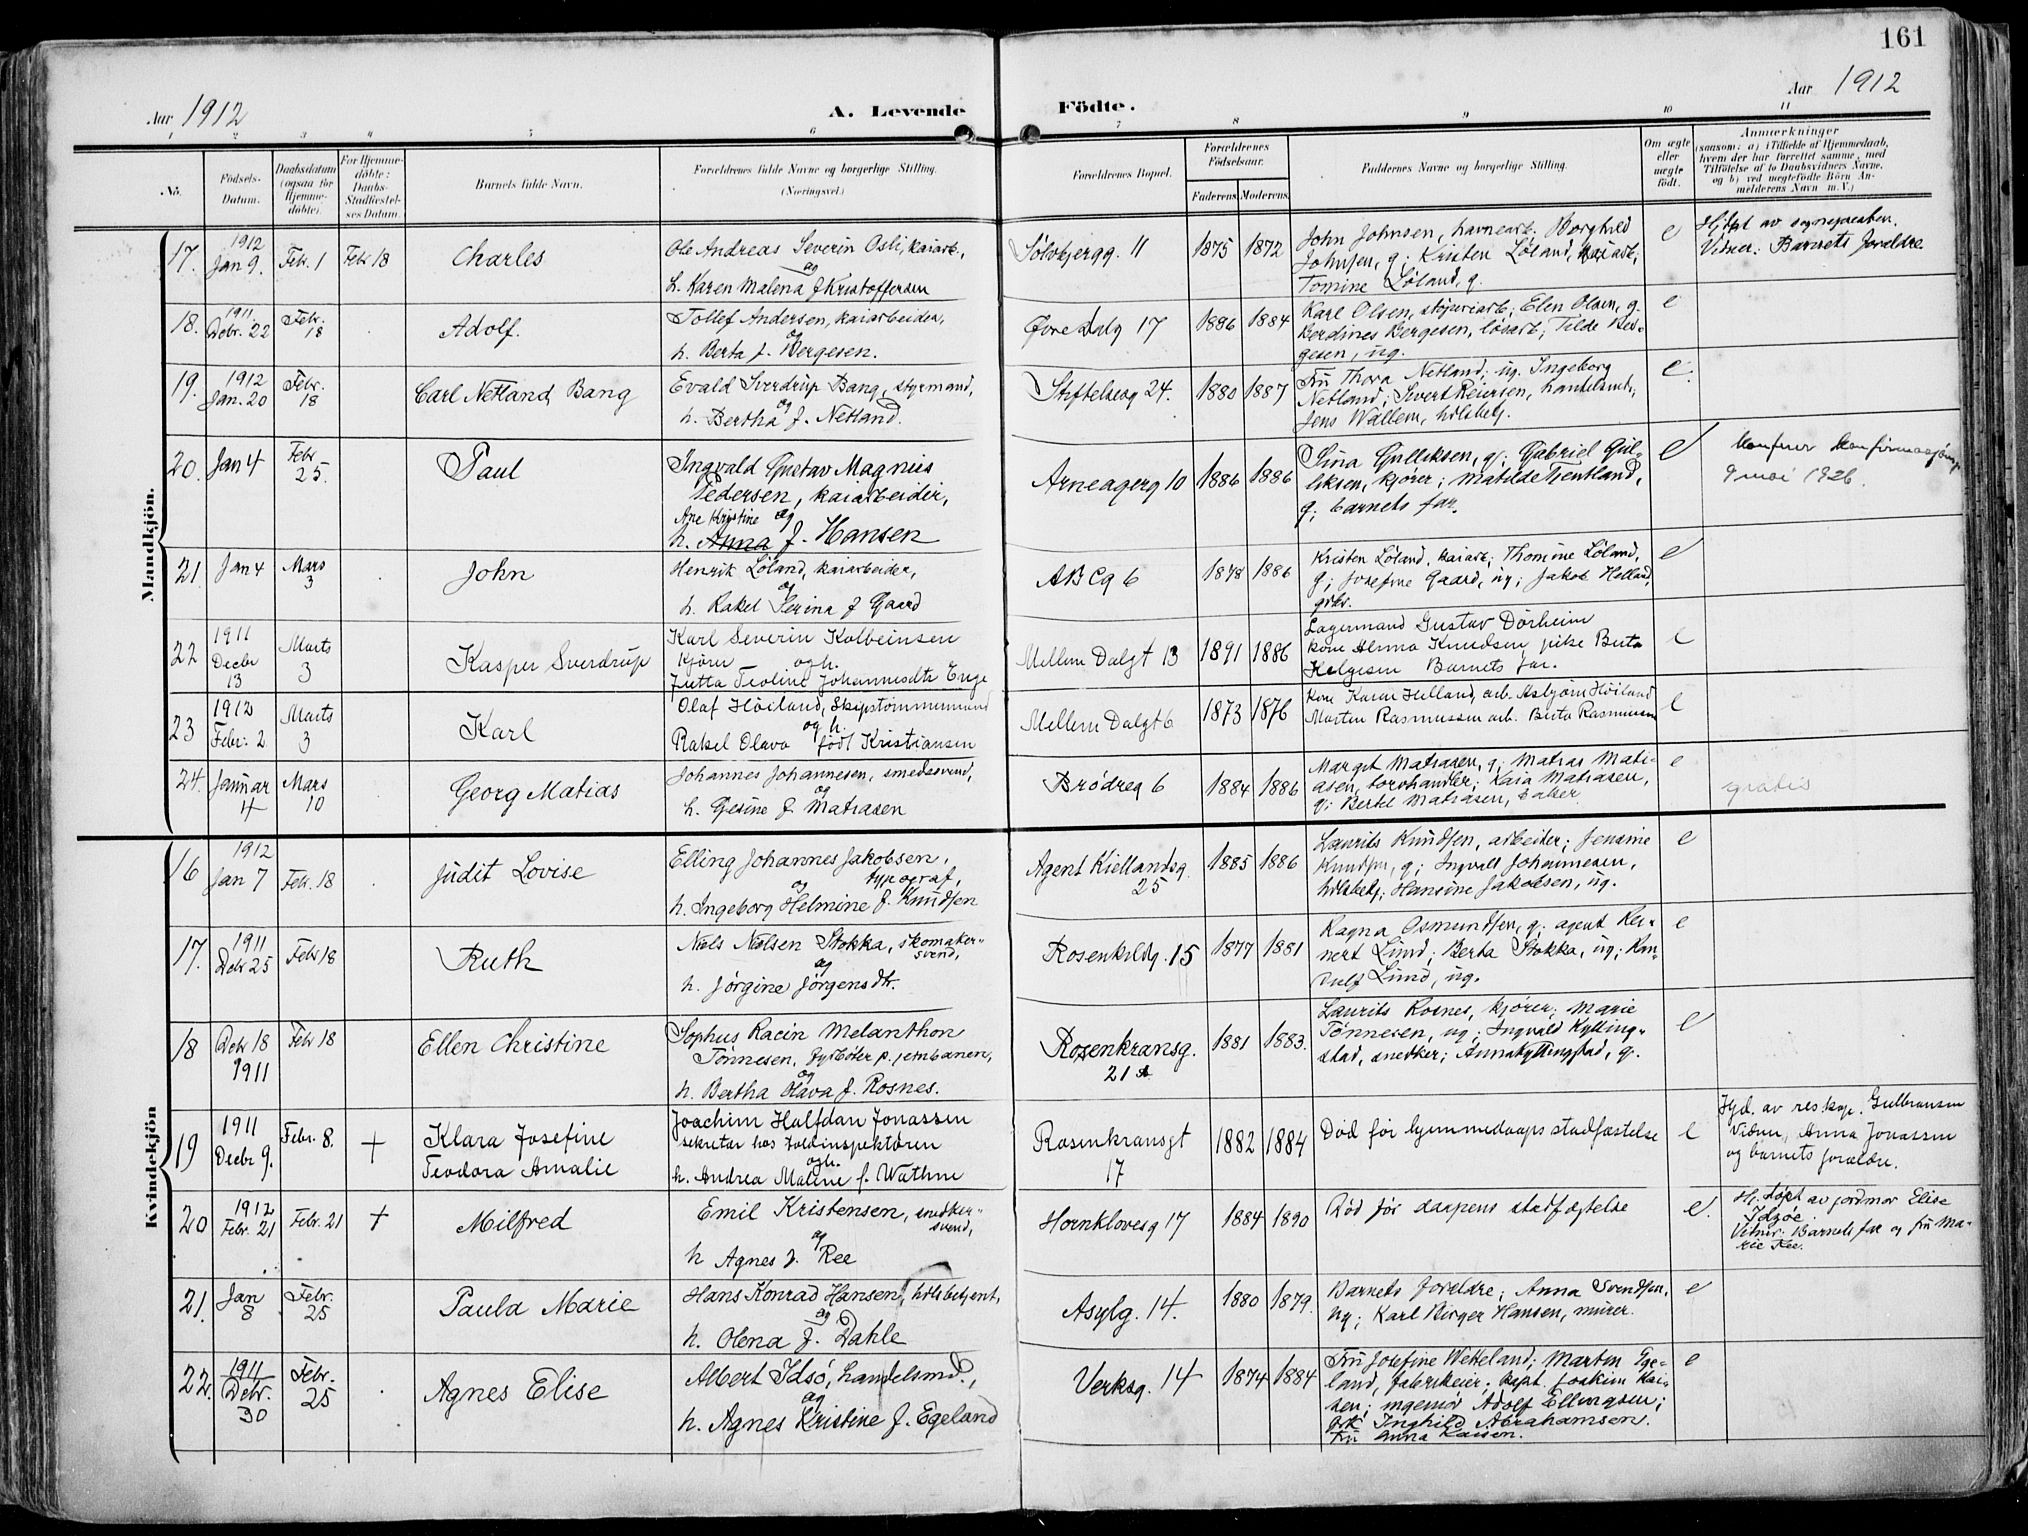 161
Aar 1912
A. Levende
Födte.
Aar 1912
1 2 3 4 5 6 7 8 9 10 11
No.
Födsels-
Datum.
Daabsdatum
(ogsaa for
Hjemme-
döbte).
For Hjemme-
döbte:
Daabs-
Stadfæstel-
ses Datum.
Barnets fulde Navn.
Forældrenes fulde Navne og borgerlige Stilling.
(Næringsvei.)
Forældrenes Bopæl.
Forældrenes
Födselsaar.
Faderens. Moderens.
Faddernes Navne og borgerlige Stilling.
Om ægte
eller
uægte
födt.
Anmærkninger
(saasom: a) i Tilfælde af Hjemmedaab,
hvem der har forrettet samme, med
Tilföielse af to Daabsvidners Navne,
og b) ved uægtefödte Börn An-
melderens Navn m. V.)
Mandkjön.
17. 1912
Jan 9. Febr. 1 Febr 18 Charles
Ole Andreas Severin Osli, kaiarb.,
og
h. Karen Malena f. Kristoffersen
Sølvbjergg. 11 1875 1872
John Johnsen, havnearb. Borghild
Johnsen, g; Kristen Løland, kaiarb;
Tomine Løland, g.
e
Hjdpt av sognepresten.
Vidner: Barnets foreldre
18. 1911
Debr. 22 Febr.
18 Adolf.
Tollef Andersen, kaiarbeider,
og
h. Berta f. Bergesen.
Øvre Dalg 17 1886 1884
Karl Olsen, Elen Olsen, g.
Berdines Bergesen, løsarb; Tilde Ber-
gesen, ug.
e
19. 1912
Jan. 20 Febr.
18 Carl Netland Bang
Evald Sverdrup Bang, styrmand,
og
h. Bertha f. Netland.
Stiftelsesg 24. 1880 1887
Fru Thora Netland; ug. Ingeborg
Netland; Sivert Reiersen, handelsmd;
Jens Wallem, hdlsbetj.
e.
20. Jan 4 Febr
25. Paul
Ingvald Gustav Magnus
Pedersen, kaiarbeider,
Ane Kristine og
h. Anna f. Hansen
Arneagerg 10 1886 1886
Sina Gulliksen, g; Gabriel Gul-
liksen, kjører; Matilde Tjentland,
g; barnets far.
e
Konfirmasjons
9 mai 1926.
21. Jan 4 Mars
3 John
Henrik Løland, kaiarbeider,
og
h. Rakel Serina f Gaard
A B C g 6 1878 1886
Kristen Løland, kaiarb; Thomine Løland,
g; Josefine Gaard, ug; Jakob Helland,
e
22 1911
Decbr
13 Marts
3 Kasper Sverdrup
Karl Severin Kolbeinsen
kjører og h.
Jutta Teoline Johannesdtr Enge
Mellem Dalgt 13 1891 1886
Lagermand Gustav Dørheim
kone Anna Knudsen pike Berta
Helgesen Barnets far.
e
23 1912
Febr. 2 Marts
3 Karl
Olaf Høiland, Skipstømmermand
og h.
Rakel Olava født Kristiansen
Mellem Dalgt 6 1873 1876
kone Karen Helland, arb. Asbjørn Høiland
Marten Rasmussen arb. Berta Rasmussen
e
24. Januar
4 Mars
10 Georg Matias
Johannes Johannesen, smedsvend,
og
h. Gesine f. Matiasen
Brødreg 6 1884 1886
Margit Matiasen, g; Matias Mati-
asen, torvhandler; Kaia Matiasen,
g; Bertel Matiasen, baker.
e
gratis
Kvindekjön
16 1912
Jan 7 Feb. 18 Judit Lovise
Elling Johannes Jakobsen,
typograf,
og
h. Ingeborg Helmine f. Knudsen
Agent Kiellandsg.
25 1885 1886
Laurits Knudsen, arbeider; Jensine
Knudsen, g; Ingvald Johannesen,
hdlsbetj; Hansine Jakobsen, ug.
e
17. 1911
Debr 25 Febr 18 Ruth
Niels Nielsen Stokka, skomaker-
svend,
og
h. Jørgine Jørgensdtr.
Rosenkildeg. 15 1877 1881
Ragna Osmundsen, g; agent Rei-
nert Lund; Berta Stokka, ug; Ran-
dulf Lund, ug.
e
18 Debr 18
1911 Febr 18 Ellen Christine
Sophus Racin Melanthon
Tönnesen, fyrböter p. jernbanen,
og
h. Bertha Olava f. Rosnes.
Rosenkransg.
21 A 1881 1883.
Laurits Rosnes, kjører; Marie
Tønnesen, ug; Ingvald Kylling-
stad, snedker; Anna Kyllingstad, g.
e
19 1911
Decbr 9. Febr. 8. + Klara Josefine
Teodora Amalie
Joachim Halfdan Jonassen
sekretær hos toldinspektøren
og h.
h. Andrea Maline f. Wathne
Rosenkransgt
17 1882 1884
Død før hjemmedaaps stadfæstelse
e
Hjd. av res kap. Gulbransen
Vidner, Anna Jonassen
og barnets forældre.
20 1912
Febr. 21 Febr. 21 + Milfred
Emil Kristensen, snedker-
svend,
og
h Agnes f. Ree
Hornklovesg 17 1884 1890
Død før daapens stadfæstelse
e.
Hj. døpt av jordmor Elise
Idsøe.
Vidner: Barnets far og fru Ma-
rie Ree.
21. Jan
8 Febr.
25 Paula Marie
Hans Konrad Hansen, hdlsbetjent,
og
h. Olena f. Dahle
Asylg. 14. 1880 1879.
Barnets foreldre; Anna Svendsen,
ug; Karl Birger Hansen, murer.
e
22. 1911
Debr.
30 Febr.
25 Agnes Elise
Albert Idsö, handelsmd.,
og
h. Agnes Kristine f. Egeland
Verksg. 14 1874 1884
Fru Josefine Wetteland; Marten Ege-
land, fabrikeier. kapt Joakim Kai-
sen; ingeniør Adolf Ellingsen;
frk Inghild Abrahamsen.
Fru Anna Kaisen.
e